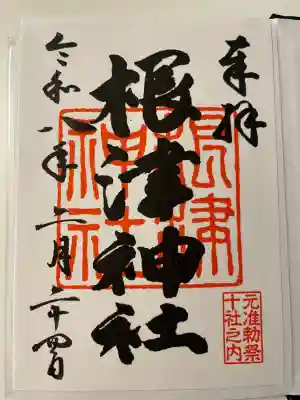 奉拝
根津神社
根津神社
元准勅祭
十社之内
令和八年二月二十四日